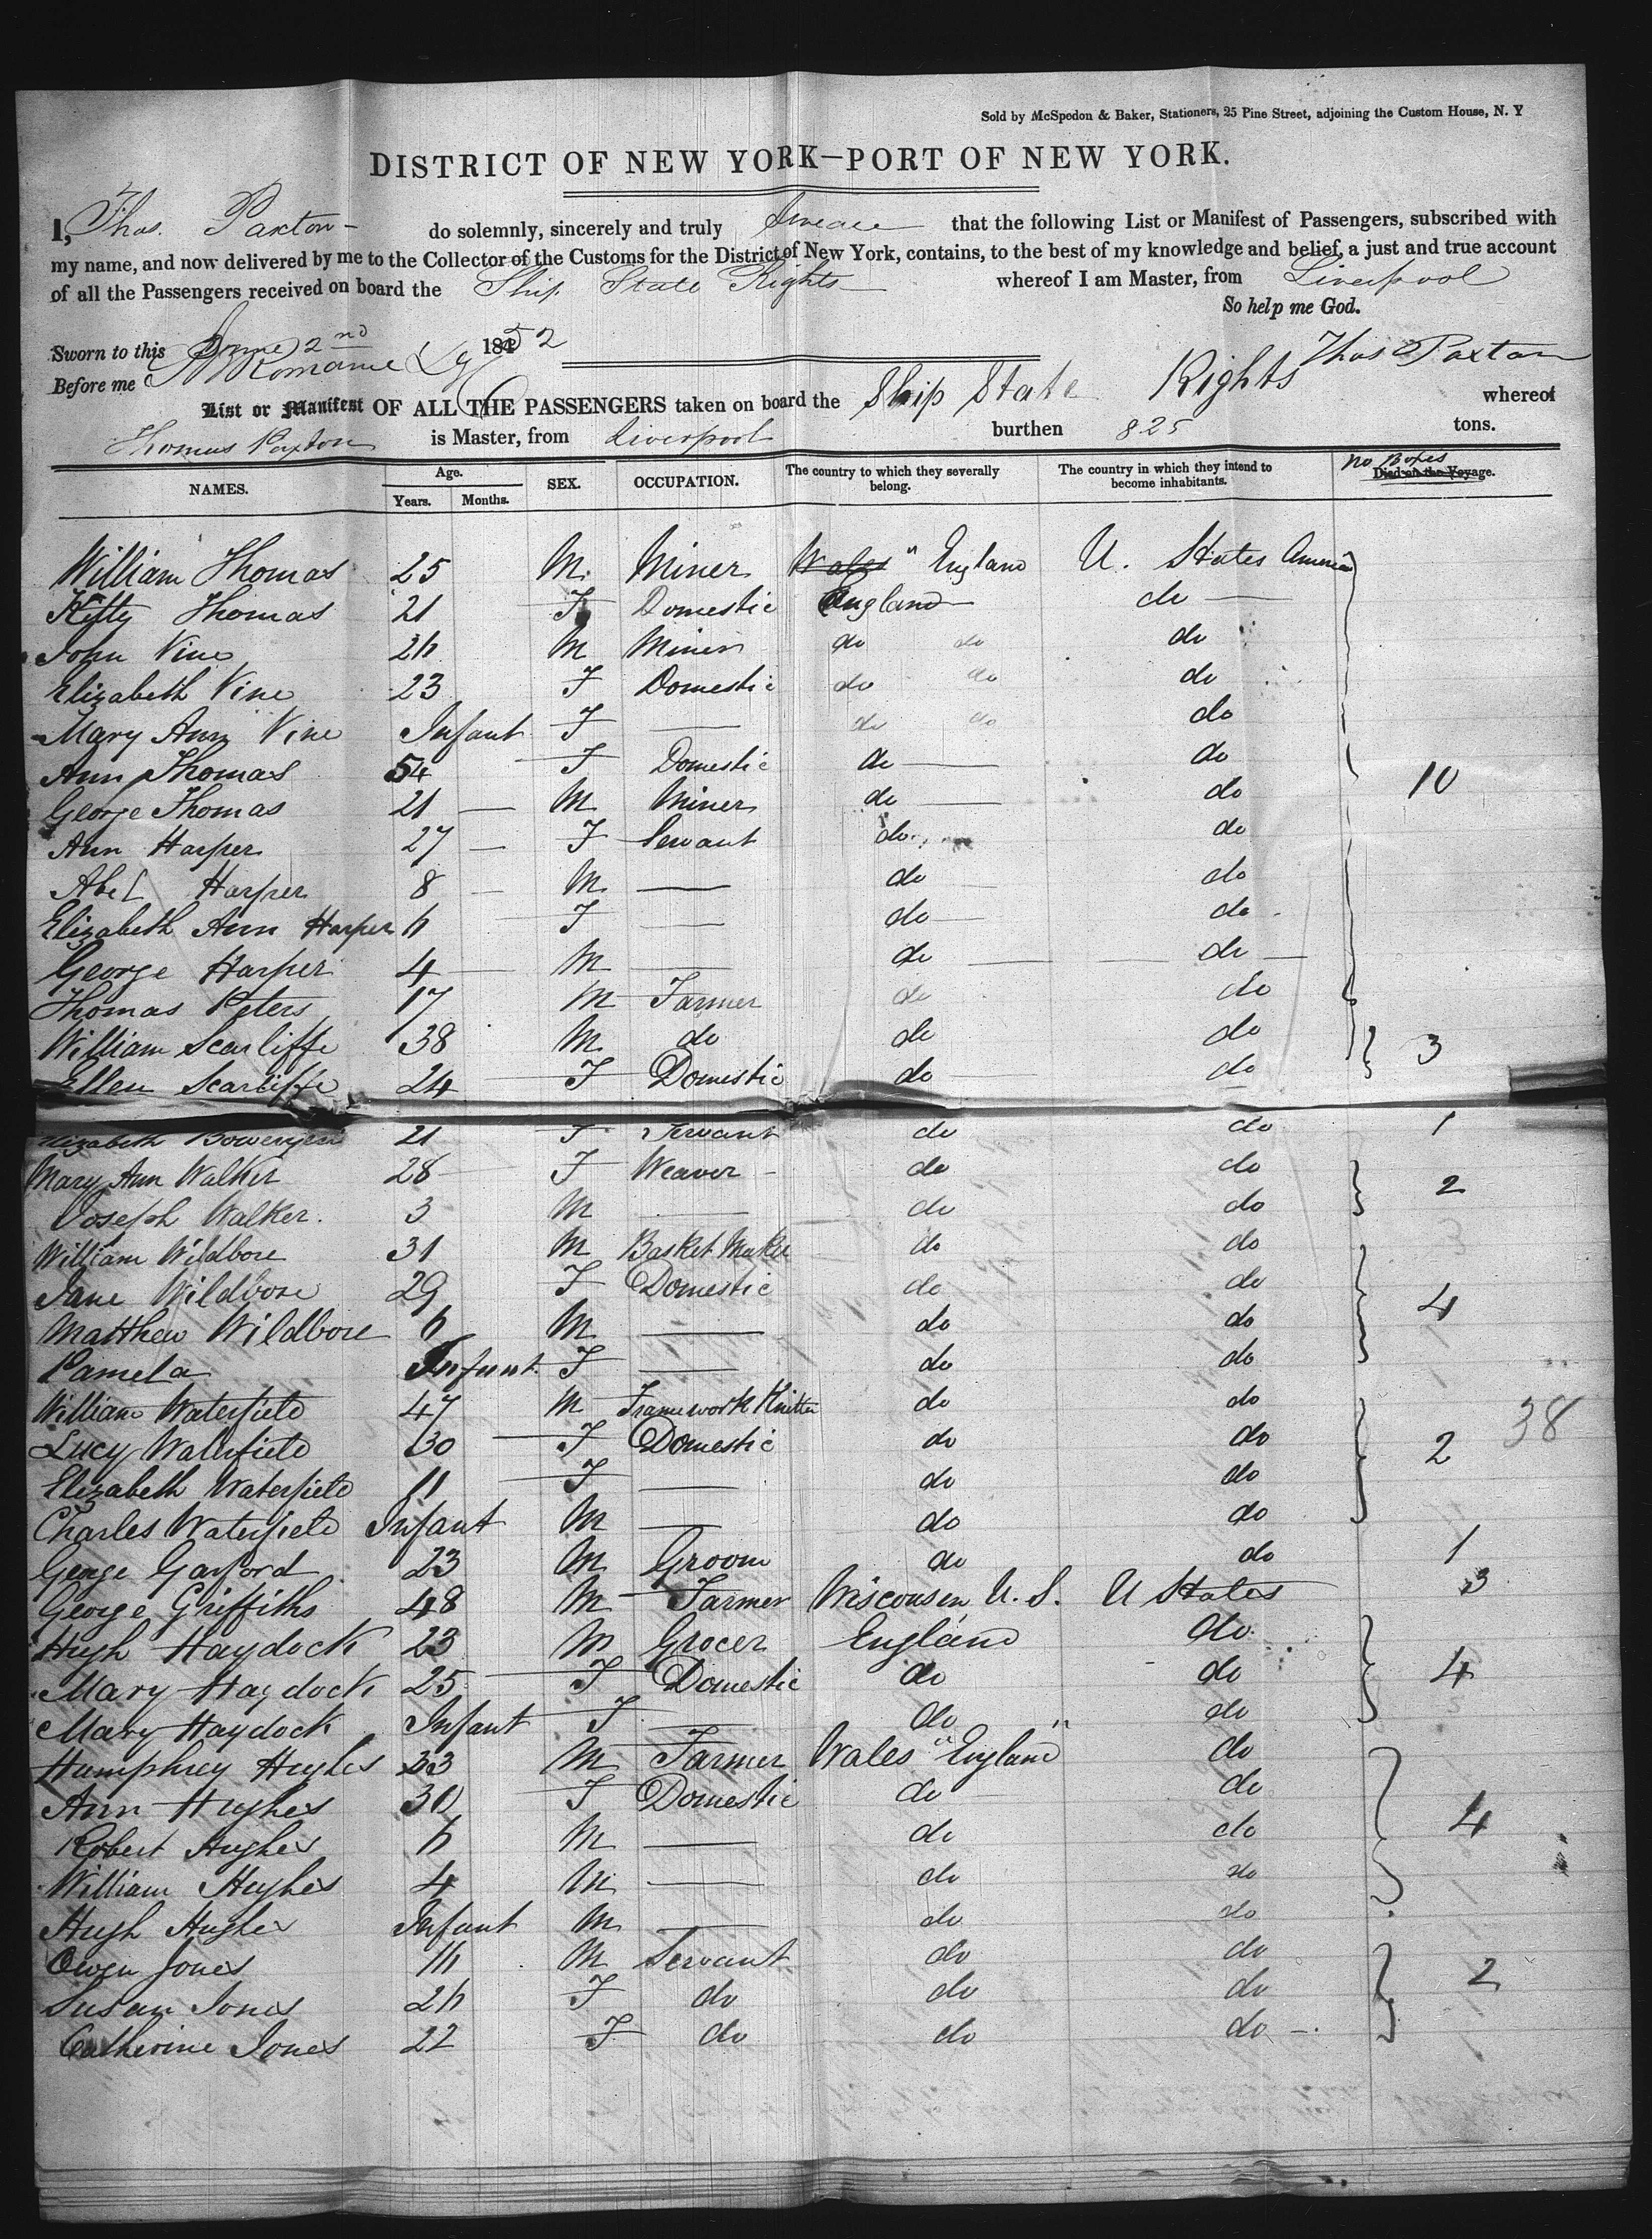 Sold by McSpedon & Baker, Stationers, 25 Pine Street, adjoining the Custom House, N. Y
DISTRICT OF NEW YORK—PORT OF NEW YORK.
I, Thos. Paxton do solemnly, sincerely and truly Swear that the following List or Manifest of Passengers, subscribed with
my name, and now delivered by me to the Collector of the Customs for the District of New York, contains, to the best of my knowledge and belief, a just and true account
of all the Passengers received on board the Ship State Rights whereof I am Master, from Liverpool
So help me God.
Sworn to this June 2nd 1852
Thos Paxton
Before me
List or Manifest OF ALL THE PASSENGERS taken on board the Ship State Rights whereof
Thomas Paxton is Master, from Liverpool burthen 825 tons.
NAMES. Age. Years. Months. SEX. OCCUPATION. The country to which they severally belong. The country in which they intend to become inhabitants. No Boxes Died on the Voyage.
William Thomas 25 M Miner Wales " England U. States America
Kitty Thomas 21 F Domestic England do
John Vine 26 M Miner do do do
Elizabeth Vine 23 F Domestic do do do
Mary Ann Vine Infant F — do do do
Ann Thomas 54 F Domestic do do
George Thomas 21 M Miner do do 10
Ann Harper 27 F Servant do do
Abel Harper 8 M — do do
Elizabeth Ann Harper 6 F — do do
George Harper 4 M — do do
Thomas Peters 17 M Farmer do do
William Scarliffe 38 M do do do 3
Ellen Scarliffe 24 F Domestic do do
Elizabeth 21 F Servant do do 1
Mary Ann Walker 28 F Weaver do do 2
Joseph Walker. 3 M — do do
William Wildbore 31 M Basket Maker do do
Jane Wildbore 29 F Domestic do do 4
Matthew Wildbore 6 M — do do
Pamela Infant F — do do
William Waterfield 47 M Framework Knitter do do 38
Lucy Waterfield 30 F Domestic do do 2
Elizabeth Waterfield 11 F — do do
Charles Waterfield Infant M — do do
George Garford 23 M Groom do do 1
George Griffiths 48 M Farmer Wisconsin U. S. U States 3
Hugh Haydock 23 M Grocer England do
Mary Haydock 25 F Domestic do do 4
Mary Haydock Infant F — do do
Humphrey Hughes 33 M Farmer Wales " England " do
Ann Hughes 30 F Domestic do do
Robert Hughes 6 M — do do 4
William Hughes 4 M — do do
Hugh Hughes Infant M — do do
Owen Jones 16 M Servant do do
Susan Jones 26 F do do do 2
Catherine Jones 22 F do do do